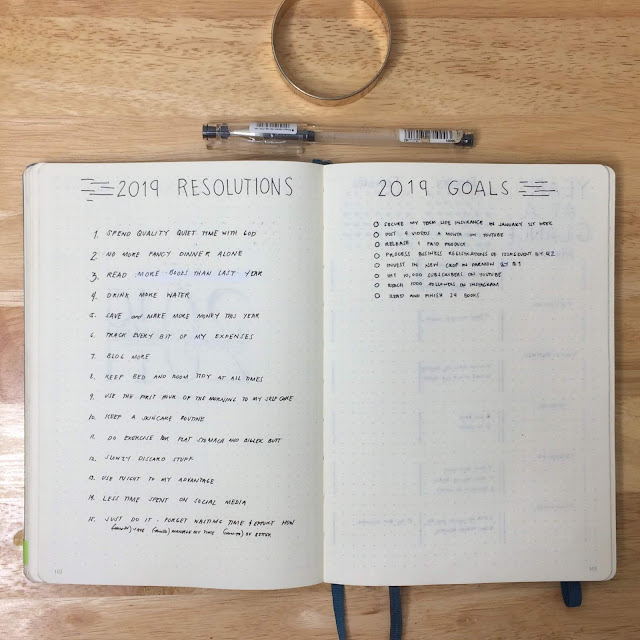 2019 RESOLUTIONS
1. SPEND QUALITY QUIET TIME WITH GOD
2. NO MORE FANCY DINNER ALONE
3. READ MORE BOOKS THAN LAST YEAR
4. DRINK MORE WATER
5. SAVE and MAKE MORE MONEY THIS YEAR
6. TRACK EVERY BIT OF MY EXPENSES
7. BLOG MORE
8. KEEP BED AND ROOM TIDY AT ALL TIMES
9. USE THE FIRST HOUR OF THE MORNING TO MY SELF CARE
10. KEEP A SKINCARE ROUTINE
11. DO EXERCISE FOR FLAT STOMACH AND BIGGER BUTT
12. SLOWLY DISCARD STUFF
13. USE MIGHT TO MY ADVANTAGE
14. LESS TIME SPENT ON SOCIAL MEDIA
15. JUST DO IT. FORGET WASTING TIME & EFFORT HOW
MANAGE MY TIME BETTER
2019 GOALS
SECURE MY TERM LIFE INSURANCE IN JANUARY 1ST WEEK
POST 4 VIDEOS A MONTH ON YOUTUBE
RELEASE 1 PAID PRODUCT
PROCESS BUSINESS REGISTRATIONS OF BY Q2
INVEST IN NEW IN BY Q1
HIT 10,000 SUBSCRIBERS ON YOUTUBE
REACH 1000 FOLLOWERS ON INSTAGRAM
READ AND FINISH 24 BOOKS